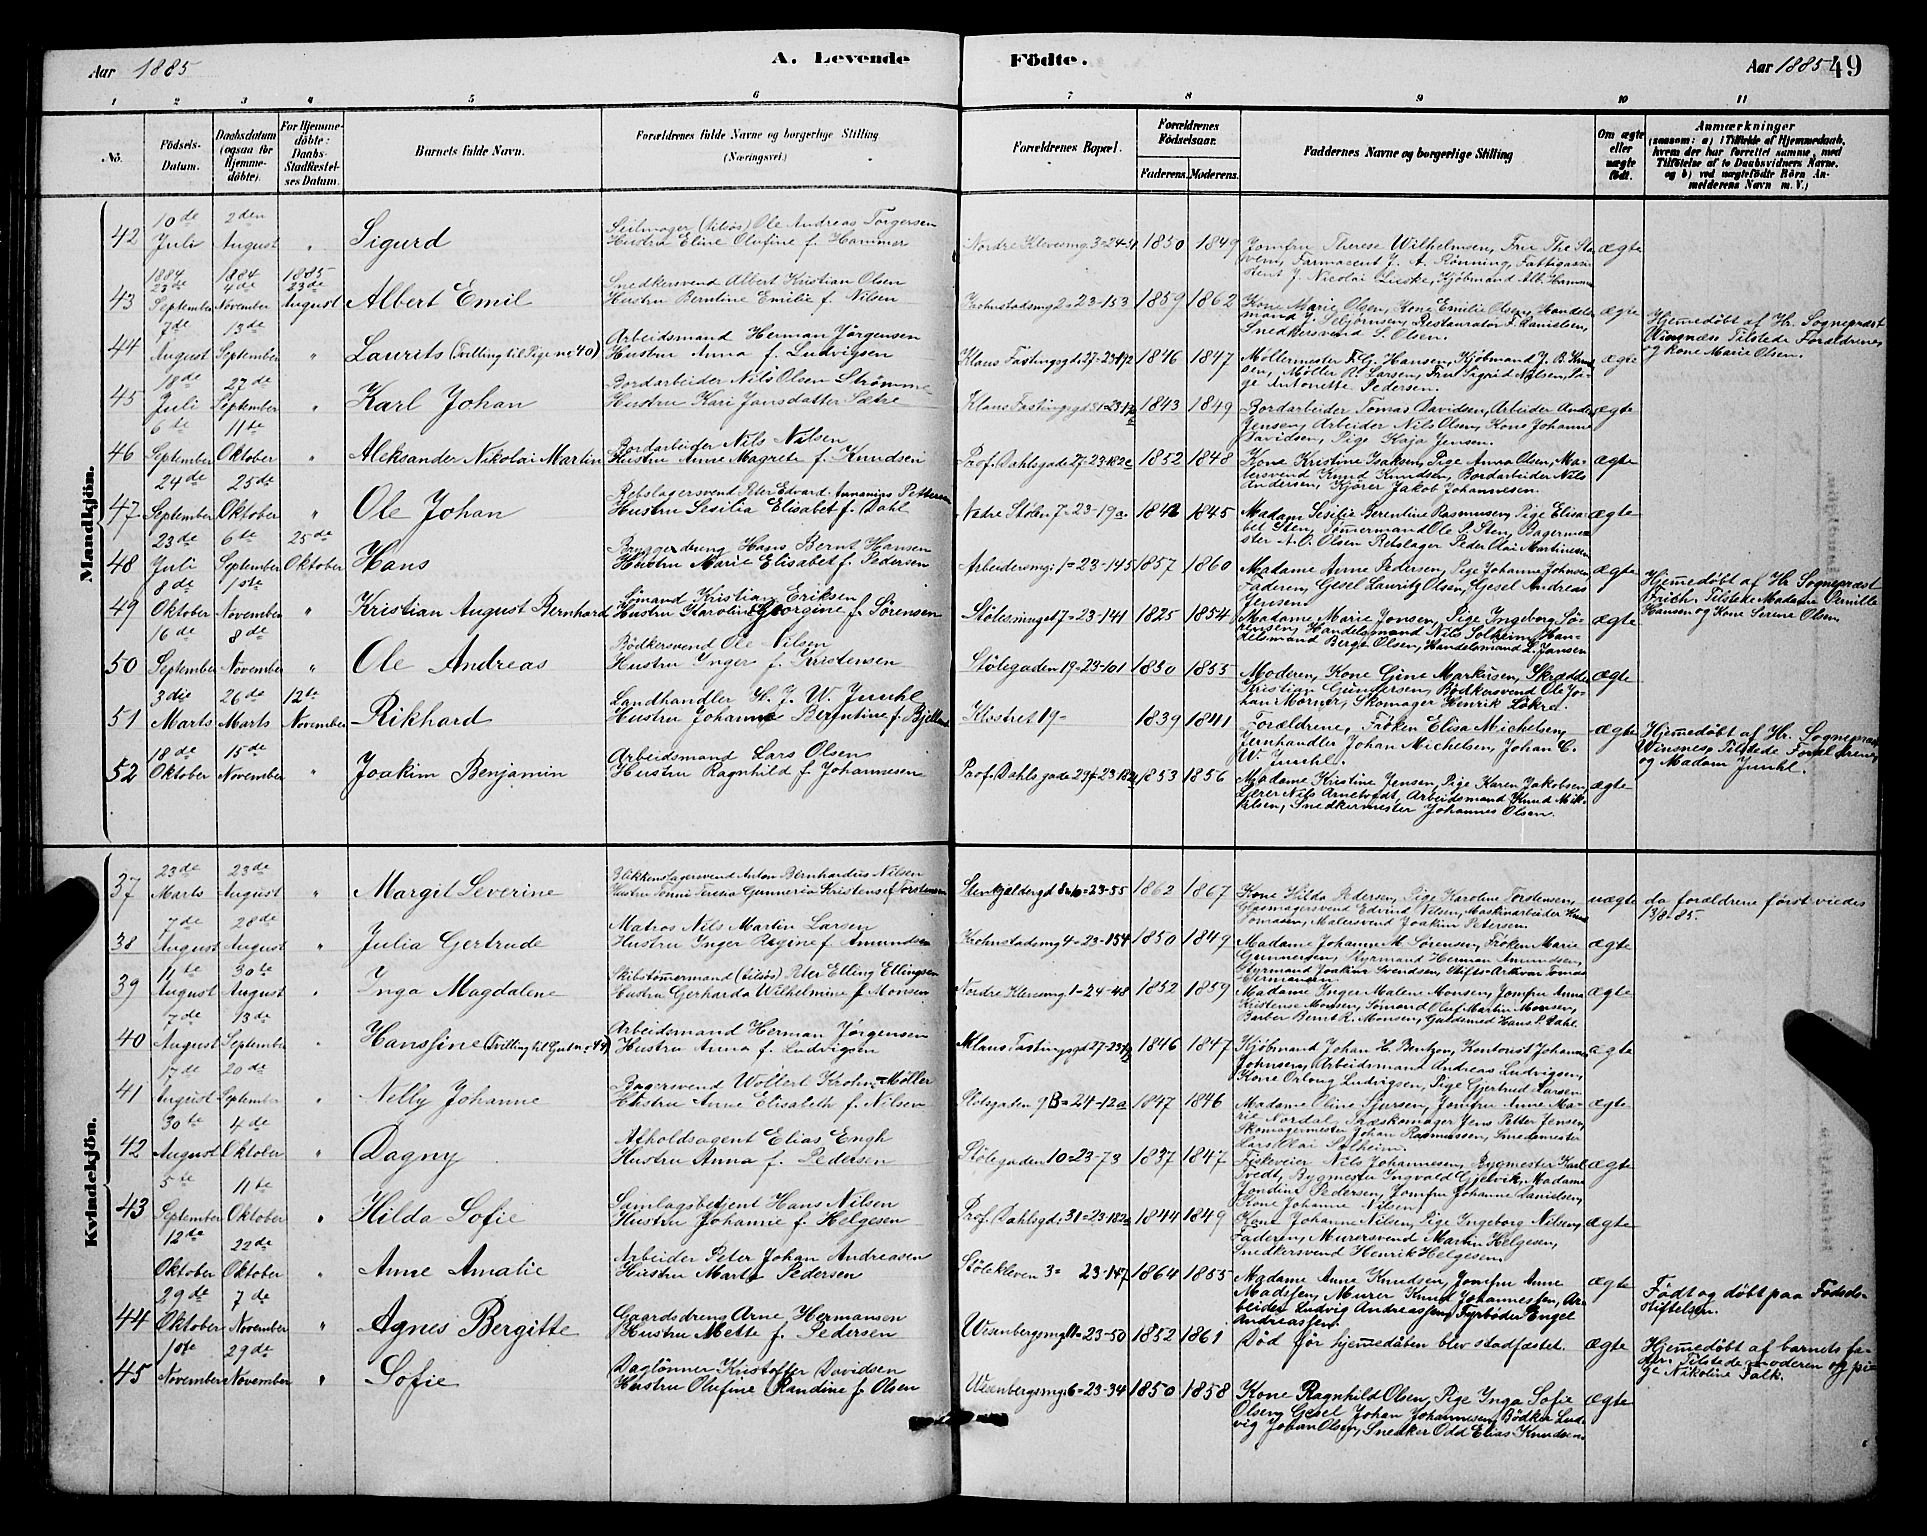 Aar 1885
A. Levende
Födte.
Aar 1885
49
1 2 3 4 5 6 7 8 9 10 11
No.
Födsels-
Datum.
Daabsdatum
(ogsaa for
Hjemme-
döbte).
For Hjemme-
döbte:
Daabs-
Stadfæstel-
ses Datum.
Barnets fulde Navn.
Forældrenes fulde Navne og borgerlige Stilling
(Næringsvei.)
Forældrenes Bopæl.
Forældrenes
Födselsaar.
Faderens. Moderens.
Faddernes Navne og borgerlige Stilling
Om ægte
eller
uægte
födt.
Anmærkninger
(saasom: a) i Tilfælde af Hjemmedaab,
hvem der har forrettet samme, med
Tilföielse af to Daabsvidners Navne,
og b) ved uægtefödte Börn An-
melderens Navn m. V.)
Mandkjön.
42 10de Juli 2den August " Sigurd
Seilmager Ole Andreas Torgersen
Hustru Eline Olufine f. Hammer
Nordre Klevesmg 3=24-4 1850 1849
Jomfru Therese Wilhelmsen, Frue The
Farmaceut J. A. Rönning, Fattigassi
stent J. Nicolai Lieske, Kjöbmand Alb. Hammer
ægte
43 1884 23de September 1884 4de November 1885 23de August Albert Emil
Snedkersvend Albert Kristian Olsen
Hustru Berntine Emilie f. Nilsen
Krohnstadsmg 2=23-153 1859 1862
Kone Marie Olsen, Kone Emilie Olsen, Handels
mand J. Sebjörnsen, Restauratör F. Danielsen,
Snedkersvend S. Olsen.
ægte
Hjemedöbt af Hr. Sognepræst
Winsnæs Tilstede Forældrene
og Kone Marie Olsen.
44 7de August 13de September " Laurits (Tvilling til Pige no 40)
Arbeidsmand Herman Jörgensen
Hustru Anna f. Ludvigsen
Klaus Fastingsgd. 27-23 1846 1847
Möllermester Hansen, Kjöbmand J. B.
sen, Möller Larsen, Frue Sigrid Nilsen, Pi-
ge Antonette Pedersen.
ægte
45 18de Juli 27de September " Karl Johan
Bordarbeider Nils Olsen Strömme
Hustru Kari Jansdatter Sætre
Klaus Fastingsgd 31=23 1843 1849
Bordarbeider Tomas Davidsen, Arbeider Anders
Jensen, Arbeider Nils Olsen, Kone Johanne
Davidsen, Pige Kaja Jensen.
ægte
46 6te September 11te Oktober " Aleksander Nikolai Martin
Bordarbeider Nils Nilsen
Hustru Anne Magrete f. Knudsen
Prof. Dahlsgade 27-23 182c 1852 1848
Kone Kristine Isaksen, Pige Anna Olsen, Ma-
lersvend Knud Knudsen, Bordarbeider Nils
Andersen, Kjörer Jakob Johannesen.
ægte
47 24de September 25de Oktober " Ole Johan
Rebslagersvend Peter Edvard Pettersen
Hustru Sesilia Elisabet f. Dahl
Nedre Stölen 7=23-19a 1842 1845
Madam Sesilie Berentine Rasmussen, Pige Elisa-
bet Sten, Tömmermand Ole P. Sten, Bagerme-
ster A. O. Olsen Rebslager Peder Olai Martinesen
ægte
48 23de Juli 6te September 25de Oktober Hans
Bryggedreng Hans Bernt Hansen
Hustru Marie Elisabet f. Pedersen
Arbeidersmg: 1=23-145 1857 1860
Madame Anne Pedersen, Pige Johanne Johnsen,
Faderen, Gesel Lauritz Olsen, Gesel Andreas
Jensen
ægte
Hjemedöbt af Hr. Sognepræst
Frich, Tilstede Madame Pernille
Hansen og Kone Serine Olsen
49 8de Oktober 1ste November " Kristian August Bernhard
Sömand Kristian Eriksen
Hustru Karoline Georgine f. Sörensen
Stölesmuget 7=23-141 1825 1854
Madame Marie Jonsen, Pige Ingeborg Sö-
rensen, Handelsmand Nils Solheim, Han-
delsmand Berge Olsen, Handelsmand L. Jansen
ægte
50 16de September 8de November " Ole Andreas
Bödkersvend Ole Nilsen
Hustru Inger f. Kristensen
Stölegaden 19=23-101 1830 1855
Moderen, Kone Gine Markusen, Skrædder
Kristian Gundersen, Bödkersvend Ole Jo-
han Mörner, Skomager Henrik Lökre.
ægte
51 3die Marts 26de Marts 12te November Rikhard
Landhandler H. J. W. Juuhl
Hustru Johanne Berntine f. Bjelland
Klostret 19= 1839 1841
Forældrene, Fröken Elisa Michelsen,
Jernhandler Johan Michelsen, Johan C.
W. Juuhl.
ægte
Hjemedöbt af Hr. Sognepræst
Winsnes, Tilstede Forældrene
og Madam Juuhl.
52 18de Oktober 15de November " Joakim Benjamin
Arbeidsmand Lars Olsen
Hustru Ragnhild f. Johannesen
Prof. Dahls gade 29 1853 1856
Madame Kristine Jensen, Pige Karen Jakobsen,
Lærer Nils Arnetvedt, Arbeidsmand Knud Mik-
kelsen, Snedkermester Johannes Olsen.
ægte
Kvindekjön.
37 23de Marts 23de August " Margit Severine
Blikkenslagersvend Anton Bernhardus Nilsen
Hustru Tomine Teresia Gunneria Kristense f. Torstensen
Stenkjeldergd 8=23-55 1862 1867
Kone Hilda Pedersen, Pige Karoline Torstensen,
Glasmagersvend Edvind Nilsen, Maskinarbeider Knud
Tomasen, Malersvend Joakim Petersen.
uægte
da forældrene först viedes
13/8-85.
38 7de August 28de August " Julia Gertrude
Matros Nils Martin Larsen
Hustru Inger Regine f. Amundsen
Krohnstadsmg 4=23-154 1850 1849
Madame Johanne M. Sörensen, Fröken Marie
Gunnersen, Styrmand Herman Amundsen,
Styrmand Joakim Svendsen, Stifts-Arkivar Tomas
Hermansen
ægte
39 11te August 30te August " Inga Magdalene
Skibstömmermand Peter Elling Ellingsen
Hustru Gerharda Wilhelmine f. Monsen
Nordre Klevesmg 1=24-48 1852 1859
Madame Inger Malene Monsen, Jomfru Anna
Kristense Monsen, Sömand Oluf Martin Monsen,
Barber Bernt R. Monsen, Guldsmed Hans P. Dahl.
ægte
40 7de August 13de September " Hansine (Tvilling til Gut no 44)
Arbeidsmand Herman Jörgensen
Hustru Anna f. Ludvigsen
Klaus Fastingsgd 27-23 1846 1847
Kjöbmand Johan H. Bentzon, Kontorist Johannes
Johnsen, Arbeidsmand Andreas Ludvigsen,
Kone Ludvigsen, Pige Gjertrud Larsen
ægte
41 17de August 20de September " Nelly Johanne
Bagersvend Wollert Krohn=Möller
Hustru Anne Elisabeth f. Nilsen
Stölegaden 9B=24-12a 1847 1846
Madame Oline Sjursen, Jomfru Anne Ma-
rie Nordal, Træskomager Jens Petter Jensen,
Skomagermester Johan Rasmussen, Smedmester
Lars Olai Solheim.
ægte
42 30te August 4de Oktober " Dagny
Afholdsagent Elias Engh
Hustru Anna f. Pedersen
Stölegaden 10=23-73 1837 1847
Fiskeveier Nils Johannesen, Bygmester Karl
Tvedt, Bygmester Ingvald Gjelvik, Madame
Jondine Pedersen, Jomfru Johanne Davidsen,
Kone Johanne Nilsen,
ægte
43 5te September 11te Oktober " Hilda Sofie
Samlagsbetjent Hans Nilsen
Hustru Johanne f. Helgesen
Prof. Dahlsgd. 31=23-182a 1844 1849
Kone Johanne Nilsen, Pige Ingeborg Nilsen,
Faderen, Murersvend Martin Helgesen,
Snedkersvend Henrik Helgesen
ægte
12te Oktober 22de Oktober " Anne Amalie
Arbeider Peter Johan Andreasen
Hustru Marta Pedersen
Stölekleven 3= 23-147 1864 1855
Madame Anne Knudsen, Jomfru Anne
Madssen, Murer Knud Johannessen, Ar-
beider Ludvig Andreassen, Fyrböder Engel
Andreassen.
ægte
Födt og döbt paa Födsels-
stiftelsen.
44 29de Oktober 7de November " Agnes Bergitte
Gaardsdreng Arne Hermansen
Hustru Mette f. Pedersen
Wesenbergsmg 11=23-50 1852 1861
Död för hjemedåben blev stadfæstet.
ægte
Hjemedöbt af barnets fa-
der. Tilstede moderen og pi-
ge Nikoline Falk.
45 1ste November 29de November " Sofie
Daglönner Kristoffer Davidsen
Hustru Olufine Randine f. Olsen
Wesenbergsmg 6=23-34 1850 1858
Kone Ragnhild Olsen, Pige Inga Sofie
Olsen, Gesel Johan Johannesen, Bödker Lud-
vig Johan Olsen, Snedker Odd Elias Knudsen.
ægte